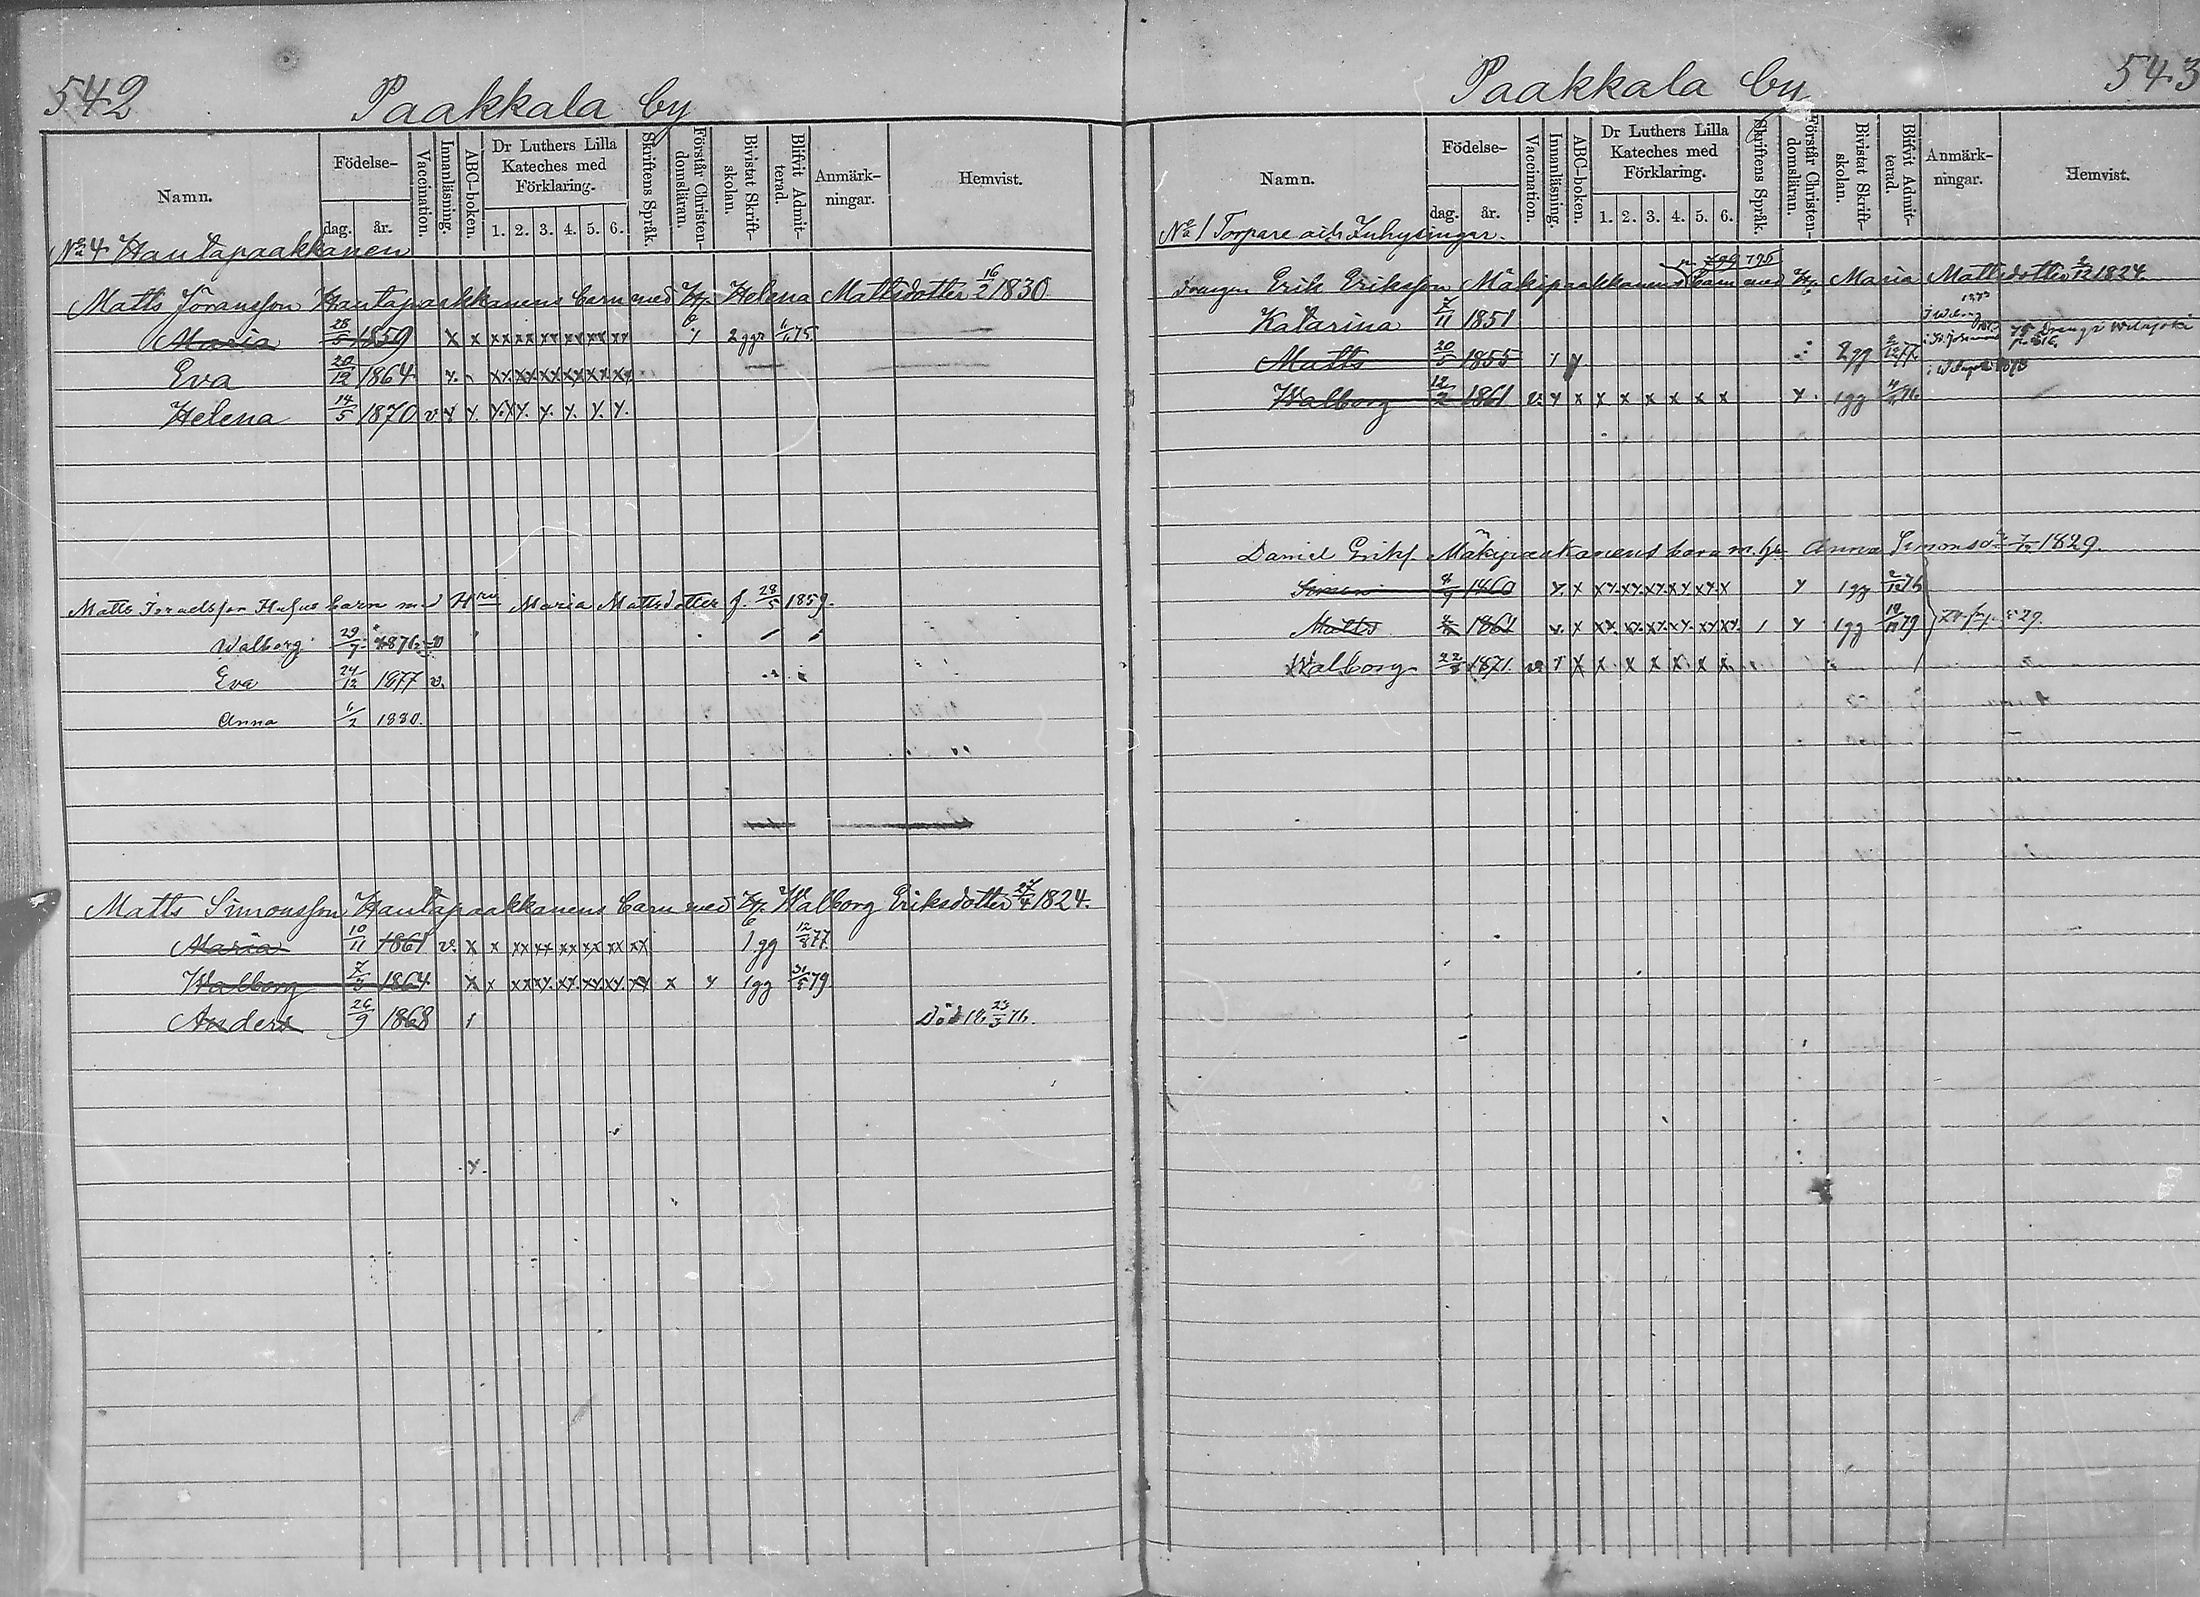 542
Paakkala by
Namn.
Födelse-
dag.
år.
Vaccination.
Innanläsning.
ABC-boken.
Dr Luthers Lilla Kateches med Förklaring.
1. 2. 3. 4. 5. 6.
Skriftens Språk.
Förstår Christendomsläran.
Bivistat Skriftskolan.
Blifvit Admitterad.
Anmärkningar.
Hemvist.
No 4 Hautapaakkanen
Matts Göransson Hautapaakkanens barn med H. Helena Mattsdotter 16/2 1830
Maria 28/5 1859 x x xx xx xx xx xx xx 2 ggr 75
Eva 20/12 1864 xx xx xx xx xx xx
Helena 14/5 1870 v
Matts Israelsson barn med Hru Maria Mattsdotter f. 28/5 1859.
Walborg 29/7 1876 v
Eva 24/12 1877 v.
Anna 1/2 1880.
Matts Simonsson Hautapaakkanens barn med H. Walborg Eriksdotter 27/4 1824.
Maria 10/11 1861 v. x x xx xx xx xx xx xx 1 gg 12/8 77
Walborg 7/3 1864 x x xx xx xx xx xx xx x 1 gg 31/5 79
Anders 26/9 1868 Död 18 23/3 76.
543
Paakkala by
Namn.
Födelse-
dag.
år.
Vaccination.
Innanläsning.
ABC-boken.
Dr Luthers Lilla Kateches med Förklaring.
1. 2. 3. 4. 5. 6.
Skriftens Språk.
Förstår Christendomsläran.
Bivistat Skriftskolan.
Blifvit Admitterad.
Anmärkningar.
Hemvist.
No 1 Torpare och Inhysingar.
p 799 795
Drängen Erik Eriksson Mäkipaakkanens barn med H. Maria Mattsdotter 2/12 1824.
Katarina 7/11 1851
Matts 20/5 1855 2 gg 2/12 77
Walborg 12/2 1861 v. x x x x x x x 1 gg
Daniel Erikss. Mäkipaakkanens barn m. h. Anna Simonsd. 1829.
Simon 8/9 1860 x xx xx xx xx xx x 1 gg 2/12 76
Matts 1861 x xx xx xx xx xx xx 1 gg 79
Walborg 22/8 1871 v x x x x x x x